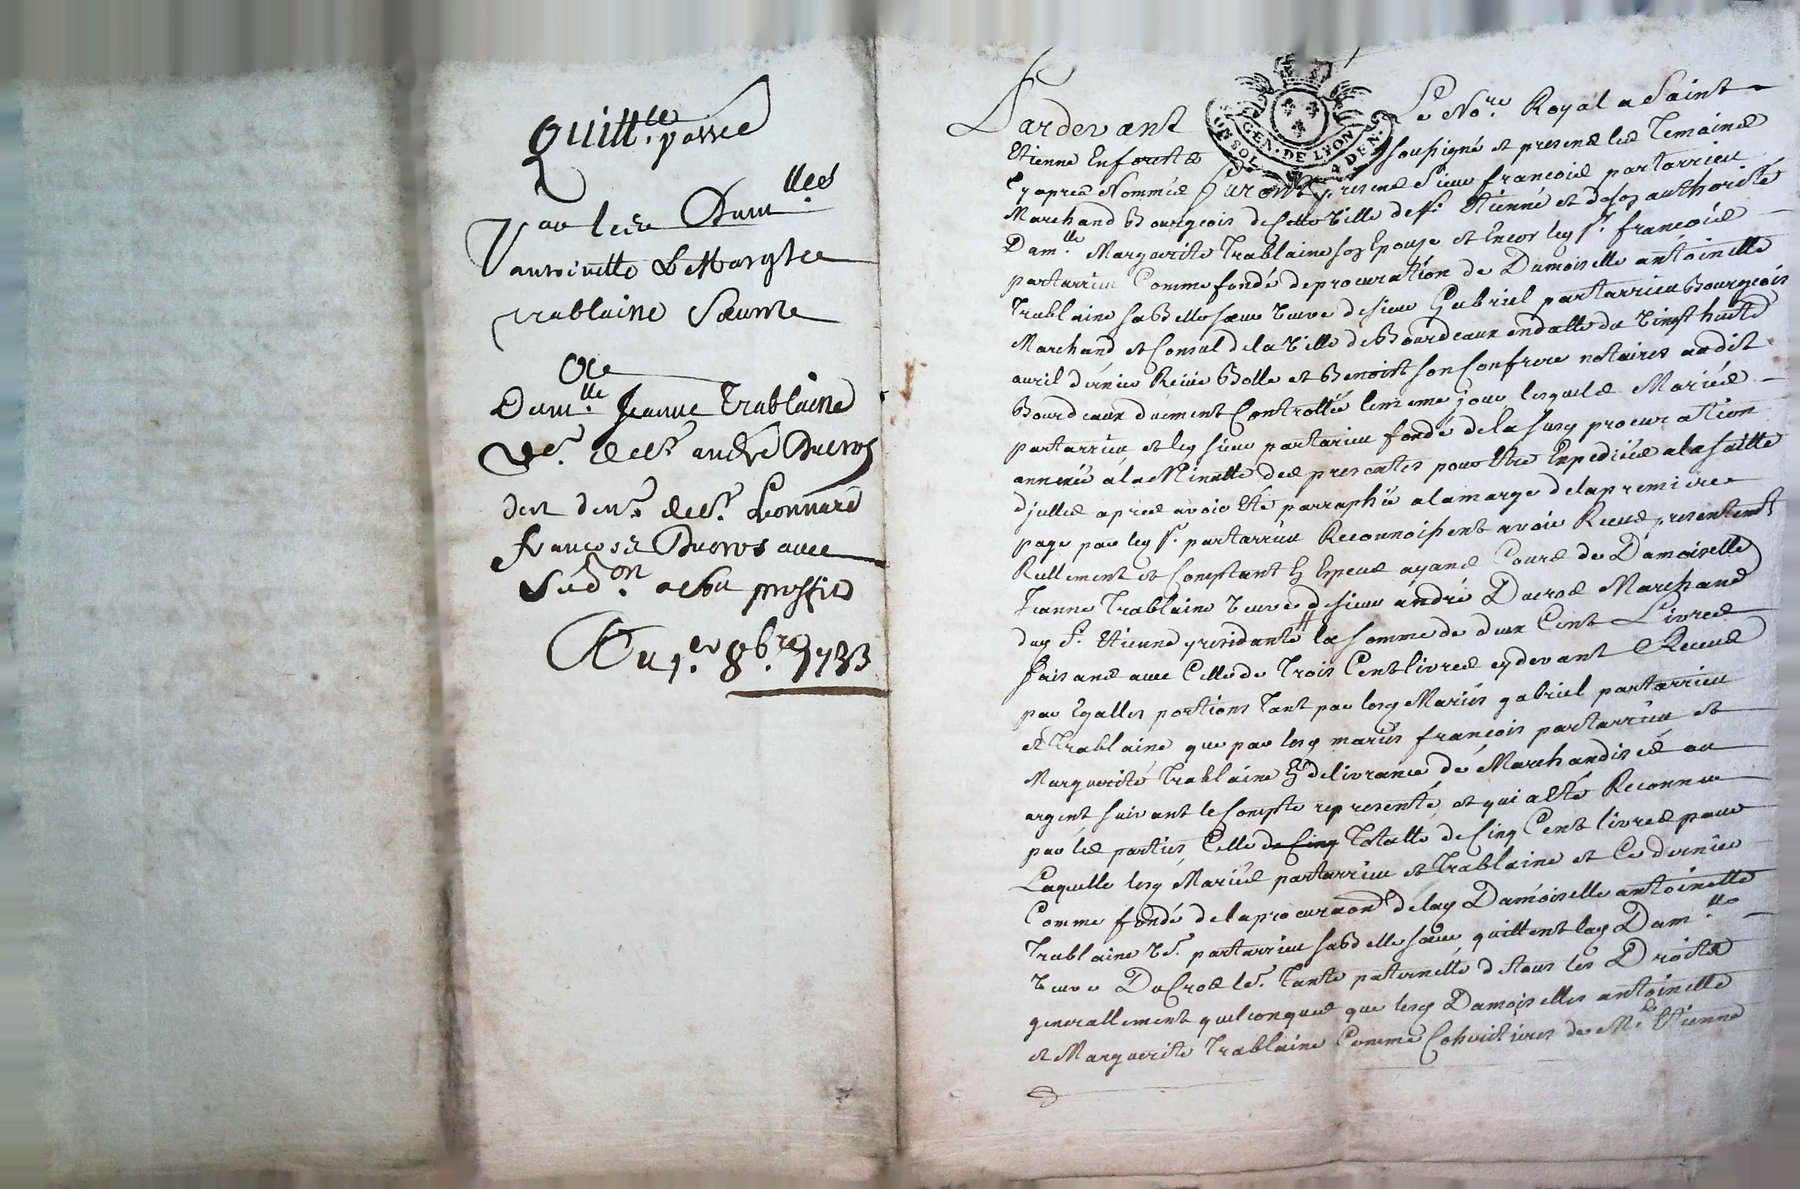 quitt.ce passée
par les Dam.lles
antoinette & Margte
trablaine sœurs
a
Dam.lle Jeanne Trablaine
ve. de sr. andré Ducros
françois Ducros avec
a son proffit
Du 1.er 8.bre 1733
GEN. DE LYON
UN SOL 4 DEN.
Pardevant Le No.re Royal a Saint
Etienne En forets soussigné et presens les temoins
Cy apres Nommés furent presens Sieur francois partarrieu
Marchand Bourgeois de cette ville de St. Etienne et de son authorité
Dam.lle Marguerite Trablaine son Epouse et Encor led Sr. francois
partarrieu Comme fondé de procuration de Damoiselle antoinette
Trablaine sa Belle sœur veuve de sieur Gabriel partarrieu Bourgeois
Marchand et Consul de la ville de Bourdeaux en datte du vingt huit
avril dernier Reçue Bolle et Benoist son Confrere notaires audit
Bourdeaux duement Controllée le meme jour lesquels Mariés
partarrieu et led sieur partarrieu fondé de la susd procuration
annexée a la Minutte des presentes pour Etre Expediée a la suitte
d'jcelles apres avoir Eté parraphée a la marge de la premiere
page par led Sr. partarrieu Reconnoissent avoir Receus presentement
Reellement et Comptant En Especes ayans Cours de Damoiselle
Jeanne Trablaine veuve de sieur andré Ducros Marchand
dud St. Etienne y residante la somme de deux Cent Livres
faisans avec Celle de Trois Cent livres cy devant Receues
par Egalles portions Tant par lesd Mariés gabriel partarrieu
et Trablaine que par lesd mariés francois partarrieu et
Marguerite Trablaine En delivrance de Marchandises ou
argent suivant le Compte representé et qui a Eté Reconnu
par les parties Celle de Cinq Totalle de Cinq Cent livres pour
Laquelle lesd Mariés partarrieu et Trablaine et Ce dernier
Comme fondé de la procuraon de lad Damoiselle antoinette
Trablaine ve. partarrieu sa Belle sœur, quittent lad Dam.lle
veuve DuCros Tante paternelle de tous les Droits
generallement quelconques que lesd Damoiselles antoinette
et Marguerite Trablaine Comme Coheritieres de Etienne